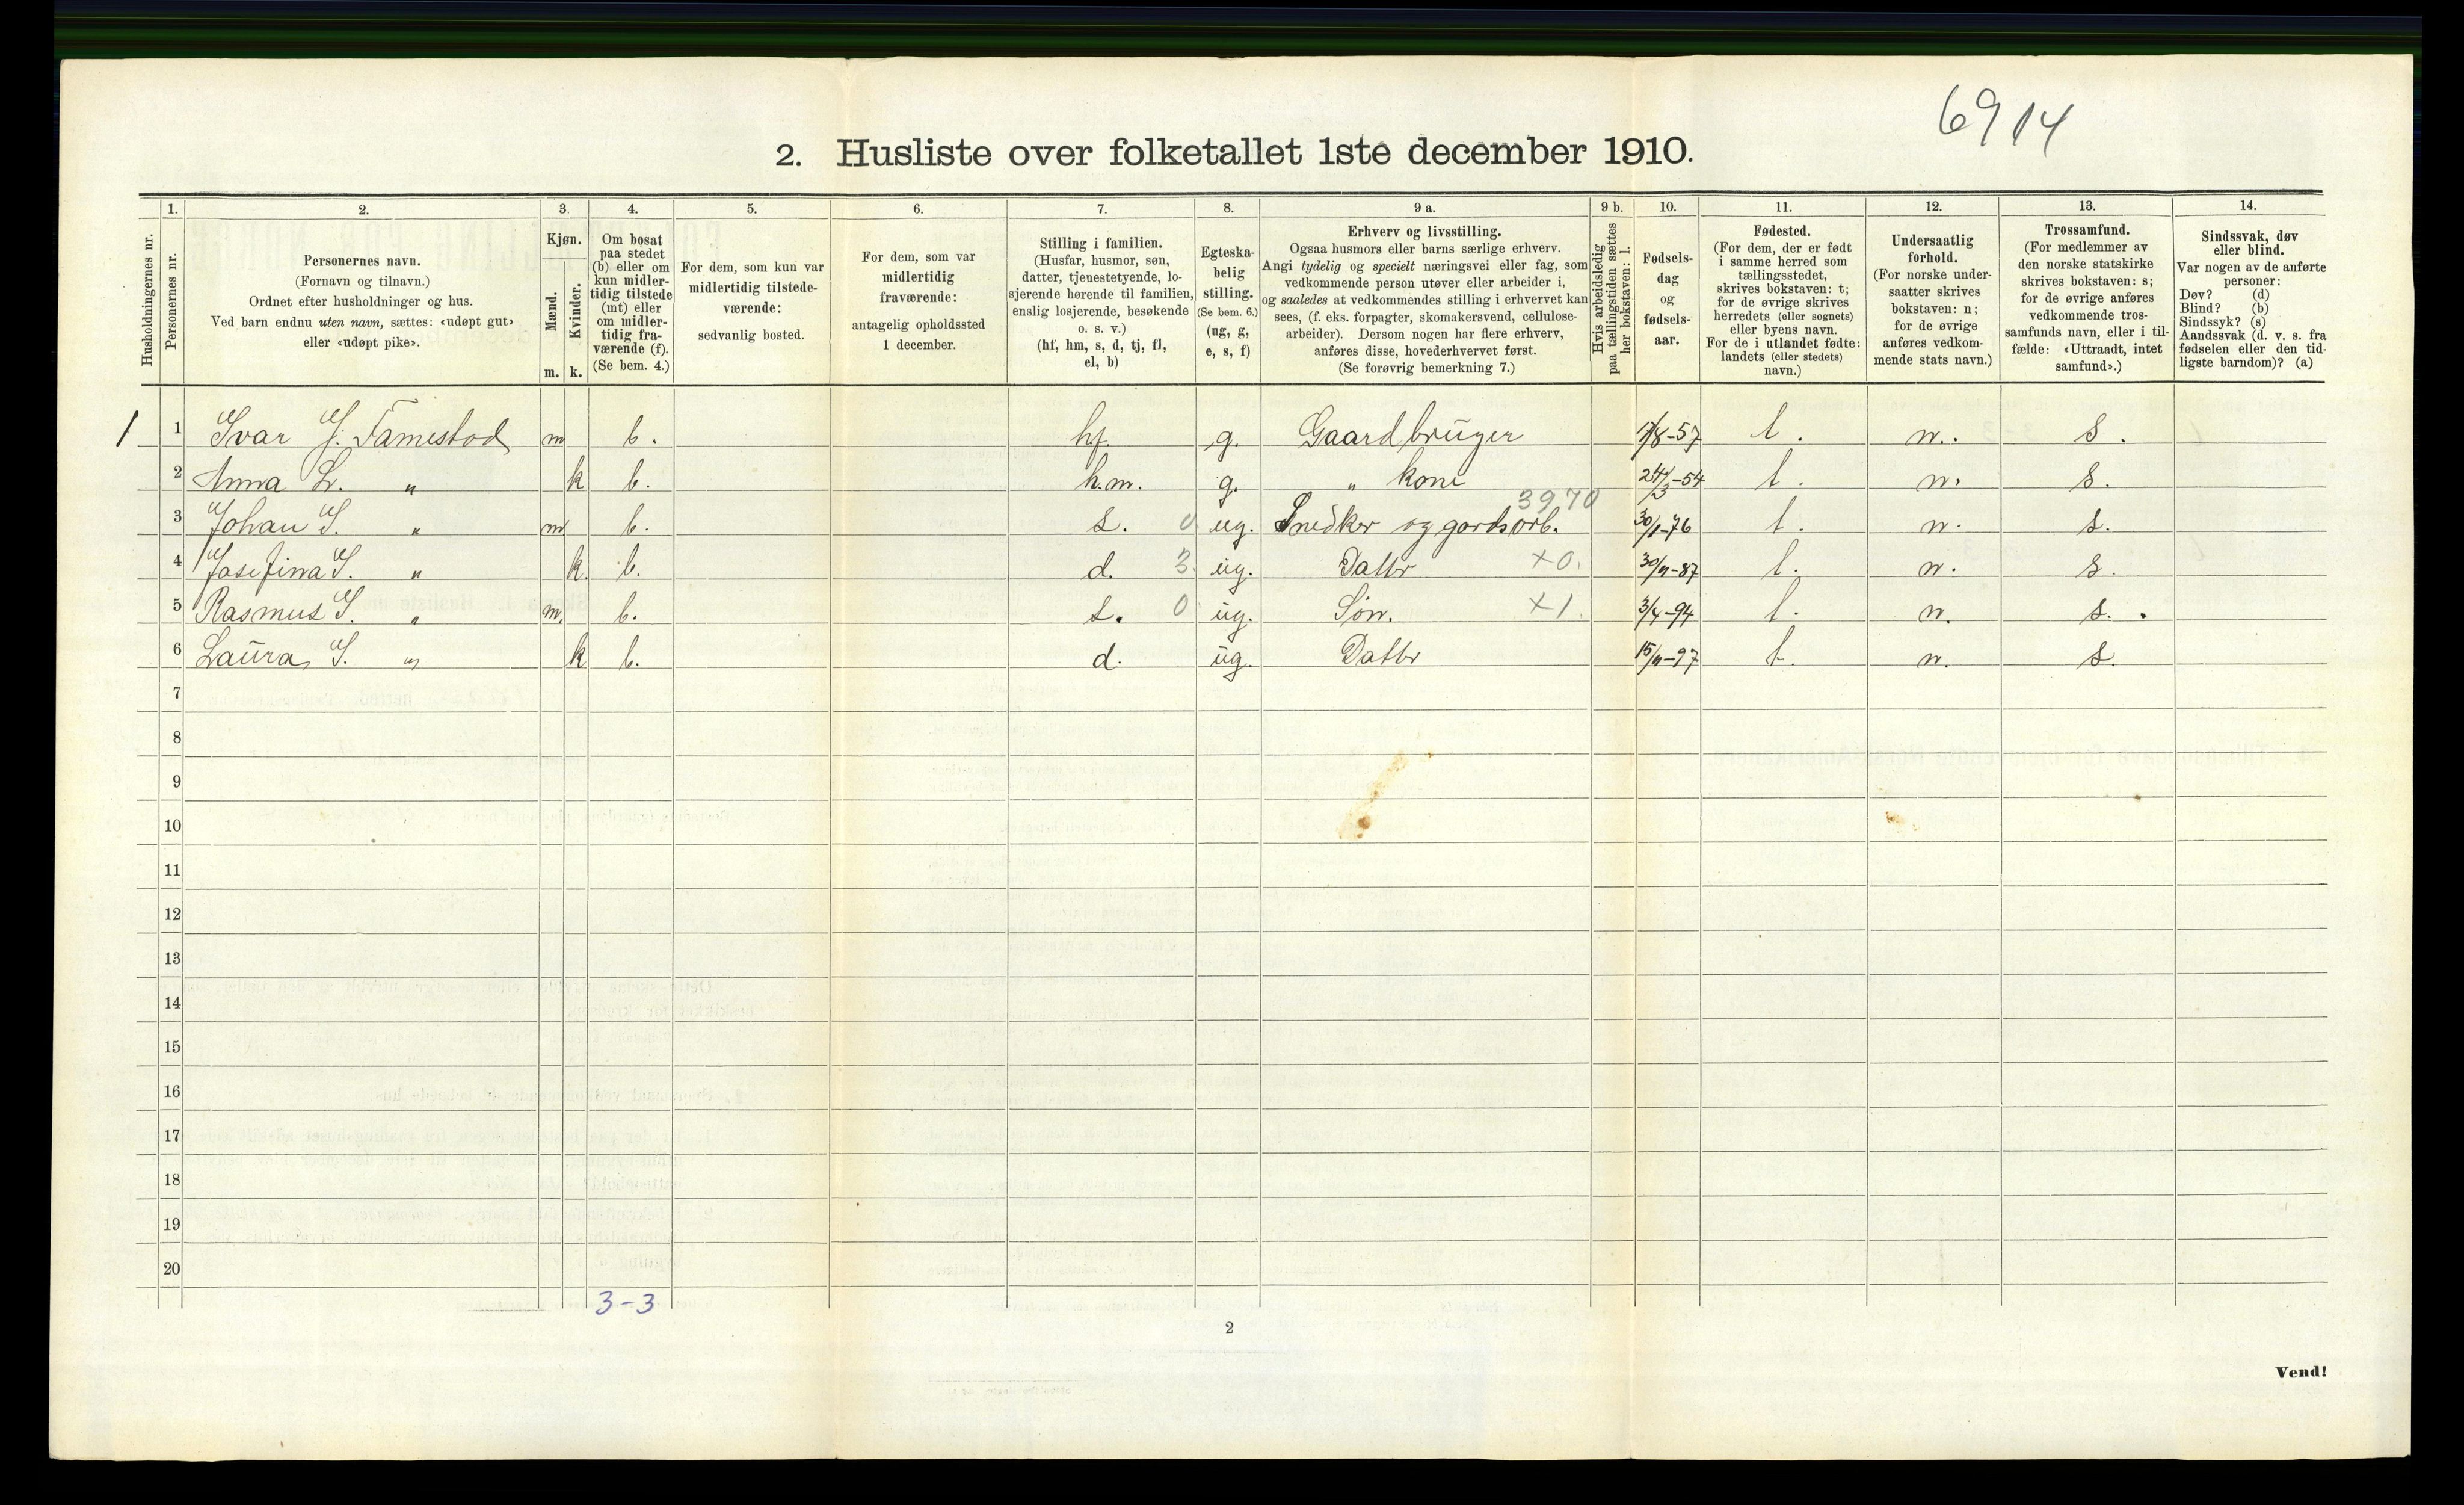 6914
2. Husliste over folketallet 1ste december 1910.
Husholdningernes nr.
1.
Personernes nr.
2.
Personernes navn.
(Fornavn og tilnavn.)
Ordnet efter husholdninger og hus.
Ved barn endnu uten navn, sættes: «udøpt gut»
eller «udøpt pike».
3.
Kjøn.
Mænd.
Kvinder.
m. k.
4.
Om bosat
paa stedet
(b) eller om
kun midler-
tidig tilstede
(mt) eller
om midler-
tidig fra-
værende (f).
(Se bem. 4.)
5.
For dem, som kun var
midlertidig tilstede-
værende:
sedvanlig bosted.
6.
For dem, som var
midlertidig
fraværende:
antagelig opholdssted
1 december.
7.
Stilling i familien.
(Husfar, husmor, søn,
datter, tjenestetyende, lo-
sjerende hørende til familien,
enslig losjerende, besøkende
o. s. v.)
(hf, hm, s, d, tj, fl,
el, b)
8.
Egteska-
belig
stilling.
(Se bem. 6.)
(ug, g,
e, s, f)
9 a.
Erhverv og livsstilling.
Ogsaa husmors eller barns særlige erhverv.
Angi tydelig og specielt næringsvei eller fag, som
vedkommende person utøver eller arbeider i,
og saaledes at vedkommendes stilling i erhvervet kan
sees, (f. eks. forpagter, skomakersvend, cellulose-
arbeider). Dersom nogen har flere erhverv,
anføres disse, hovederhvervet først.
(Se forøvrig bemerkning 7.)
9 b.
Hvis arbeidsledig
paa tællingstiden sættes
her bokstaven: l.
10.
Fødsels-
dag
og
fødsels-
aar.
11.
Fødested.
(For dem, der er født
i samme herred som
tællingsstedet,
skrives bokstaven: t;
for de øvrige skrives
herredets (eller sognets)
eller byens navn.
For de i utlandet fødte:
landets (eller stedets)
navn.)
12.
Undersaatlig
forhold.
(For norske under-
saatter skrives
bokstaven: n;
for de øvrige
anføres vedkom-
mende stats navn.)
13.
Trossamfund.
(For medlemmer av
den norske statskirke
skrives bokstaven: s;
for de øvrige anføres
vedkommende tros-
samfunds navn, eller i til-
fælde: «Uttraadt, intet
samfund».)
14.
Sindssvak, døv
eller blind.
Var nogen av de anførte
personer:
Døv? (d)
Blind? (b)
Sindssyk? (s)
Aandssvak (d. v. s. fra
fødselen eller den tid-
ligste barndom)? (a)
1 1 Ivar J. Tamestad m b. hf. g. Gaardbruger 17/8-57 t. n. s.
2 Anna L. " k b. h.m. g. " kone 24/3-54 t. n. s.
3 Johan I. " m b. s. 0 ug. Snedker og gardsarb. 3970 30/1-76 t. n. s.
4 Josefina I. " k. b. d. 3 ug. Datter ×0. 30/11-87 t. n. s.
5 Rasmus I. " m. b. s. 0 ug. Søn. ×1. 3/4-94 t. n. s.
6 Laura I. " k b. d. ug. Datter 15/11-97 t. n. s.
7
8
9
10
11
12
13
14
15
16
17
18
19
20
3-3
2
Vend!